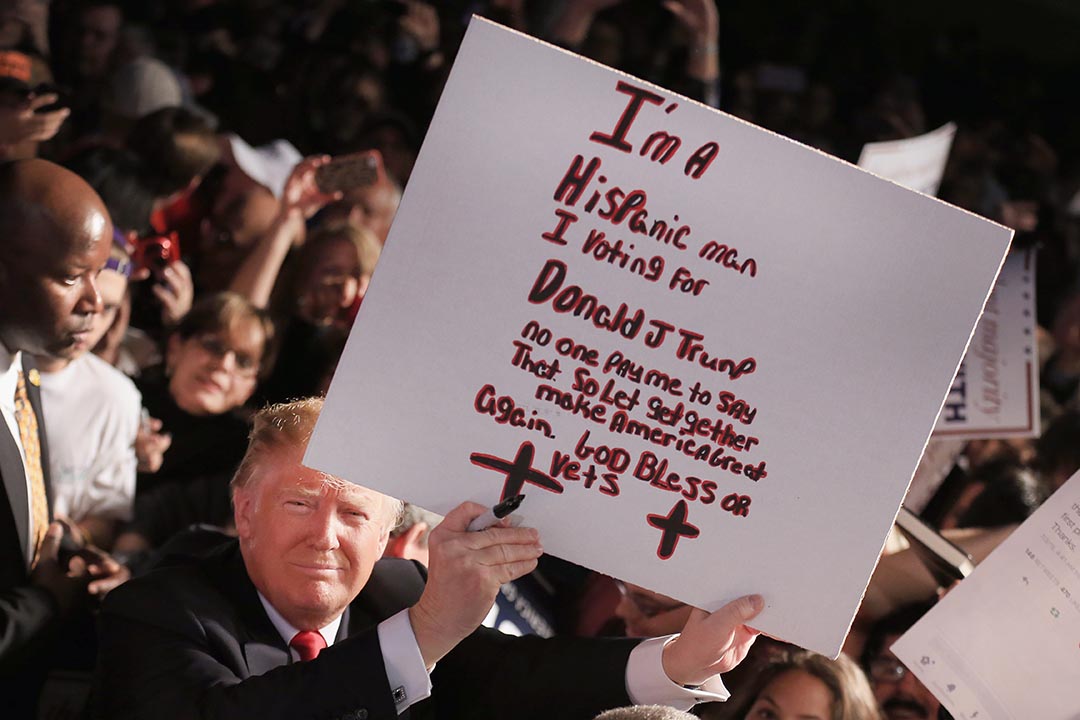 I'm A
Hispanic man
I voting for
Donald J Trump
no one pay me to say
That. So Let get gether
make America Great
Again. GOD Bless or
vets
majority
TH
first p
Thanks.